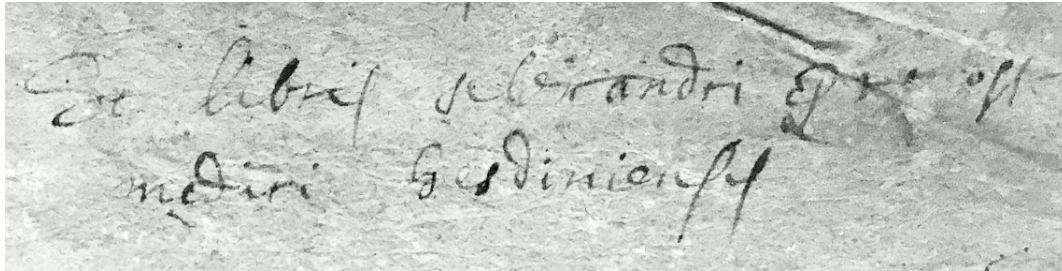 Ex libris alexandri
medici hesdiniensis